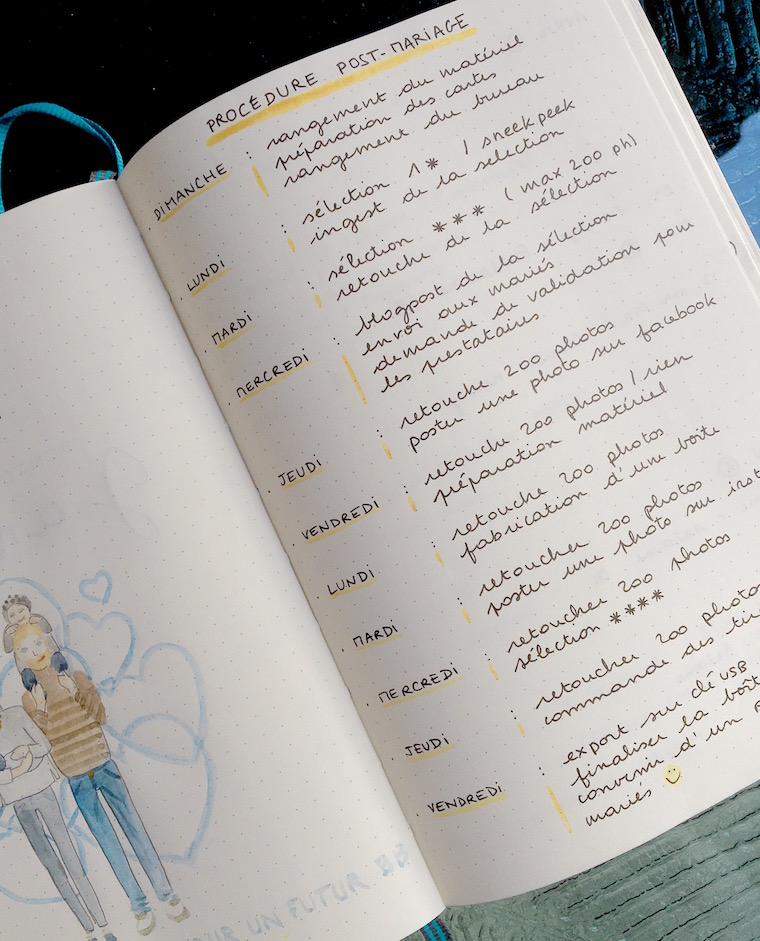 PROCÉDURE POST-MARIAGE
DIMANCHE : rangement du matériel
préparation des cartes
rangement du bureau
LUNDI : sélection 1* / sneekpeek
ingest de la sélection
MARDI : sélection *** (max 200 ph)
retouche de la sélection
MERCREDI : blogpost de la sélection
envoi aux mariés
demande de validation pour
les prestataires
JEUDI : retouche 200 photos
poster une photo sur facebook
VENDREDI : retouche 200 photos / rien
préparation matériel
LUNDI : retouche 200 photos
fabrication d'une boîte
MARDI : retoucher 200 photos
poster une photo sur
MERCREDI : retoucher 200 photos
sélection ****
JEUDI : retoucher 200 photos
commande des
VENDREDI : export sur clé USB
finaliser la boîte
convenir d'un
mariés
UN FUTUR